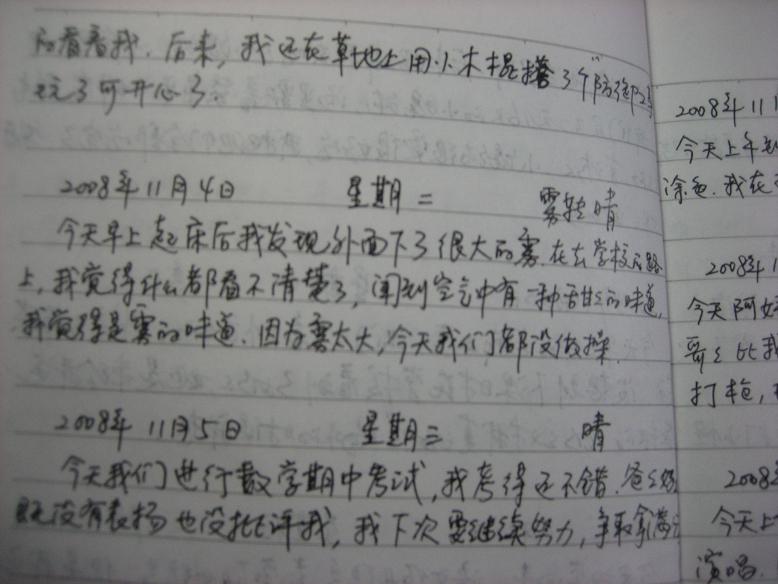 的看着我.后来,我还在草地上用小木棍搭了个"防御
玩了可开心了.
2008年11月4日 星期二 雾转晴
今天早上起床后我发现外面下了很大的雾.在去学校的路
上,我觉得什么都看不清楚了,闻到空气中有一种甜甜的味道,
我觉得是雾的味道.因为雾太大,今天我们都没做操.
2008年11月5日 星期三 晴
今天我们进行数学期中考试,我考得还不错.爸爸妈
既没有表扬也没批评我,我下次要继续努力,争取拿满分
2008年11
今天上午
涂色.我在
2008年1
今天阿
哥哥比我
打枪,
2008
今天上
演唱.